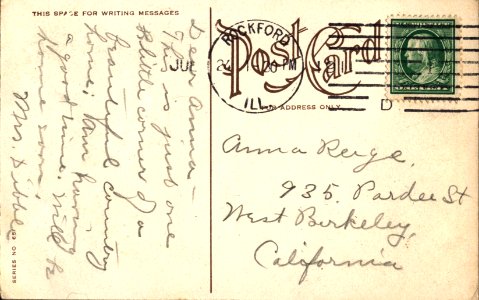 THIS SPACE FOR WRITING MESSAGES
Dear Anna—
This is just one
little corner of a
beautiful country
home; am having
a good time. Will be
home soon.
Mrs.
SERIES NO.
Post Card
ROCKFORD
JUL 24
PM
ILL.
ADDRESS ONLY
D
Anna Reige,
935. Pardee St
West Berkeley,
California